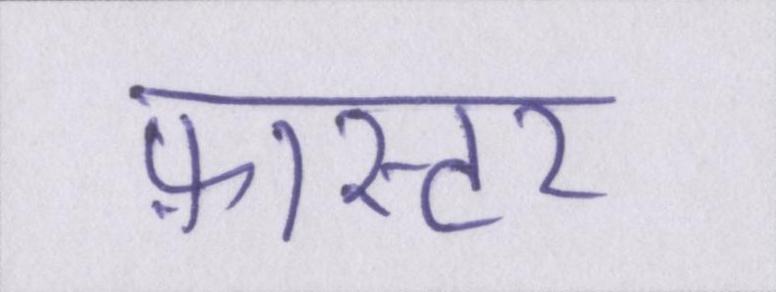 फ़ास्टर